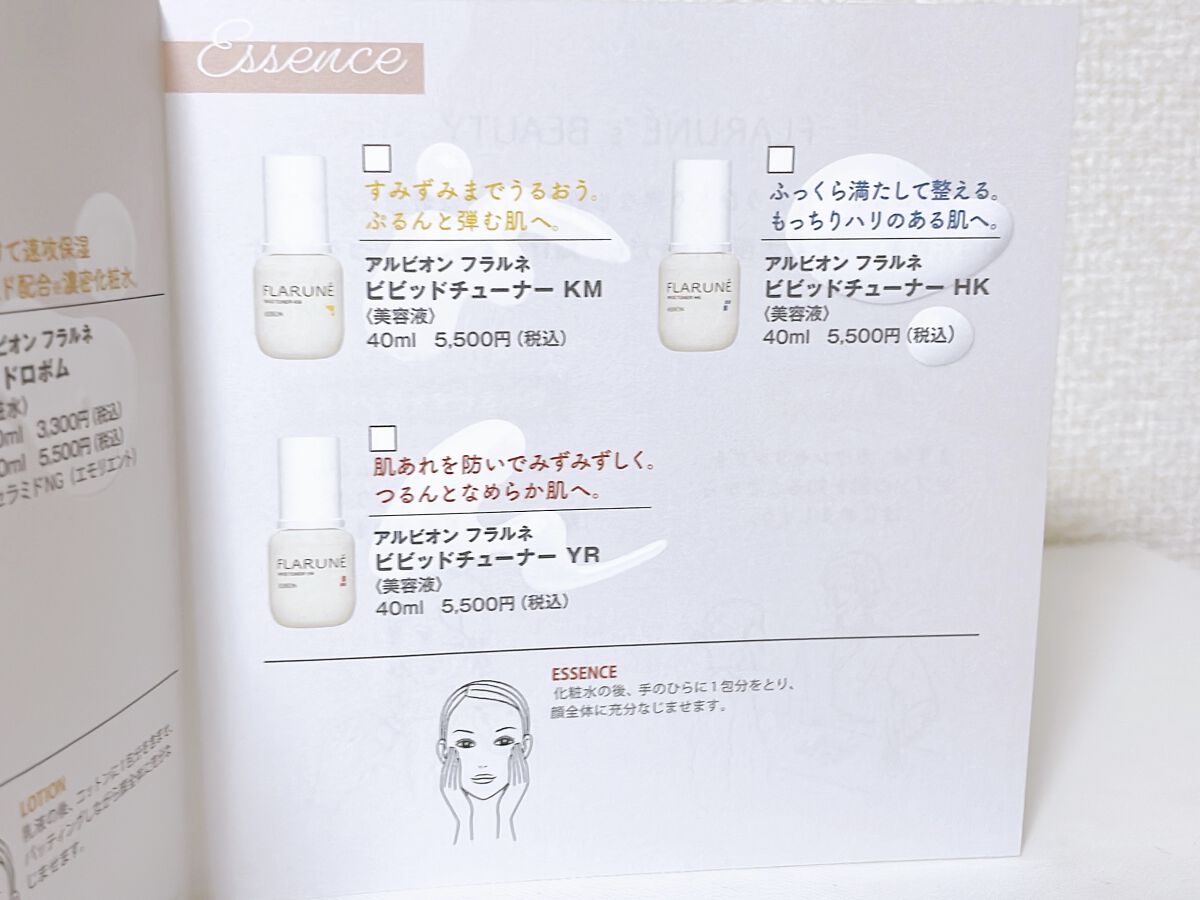 Essence
すみずみまでうるおう。
ぷるんと弾む肌へ。
アルビオン フラルネ
ビビッドチューナー KM
〈美容液〉
40ml 5,500円（税込）
FLARUNÉ
ふっくら満たして整える。
もっちりハリのある肌へ。
アルビオン フラルネ
ビビッドチューナー HK
〈美容液〉
40ml 5,500円（税込）
FLARUNÉ
肌あれを防いでみずみずしく。
つるんとなめらか肌へ。
アルビオン フラルネ
ビビッドチューナー YR
〈美容液〉
40ml 5,500円（税込）
FLARUNÉ
ESSENCE
化粧水の後、手のひらに1包分をとり、
顔全体に充分なじませます。
て速攻保湿
ド配合※濃密化粧水。
ビオン フラルネ
ドロボム
粧水〉
0ml 3,300円（税込）
0ml 5,500円（税込）
セラミドNG（エモリエント）
LOTION
乳液の後、コットンに1包分をとり、
パッティングしながら顔全体に充分な
じませます。